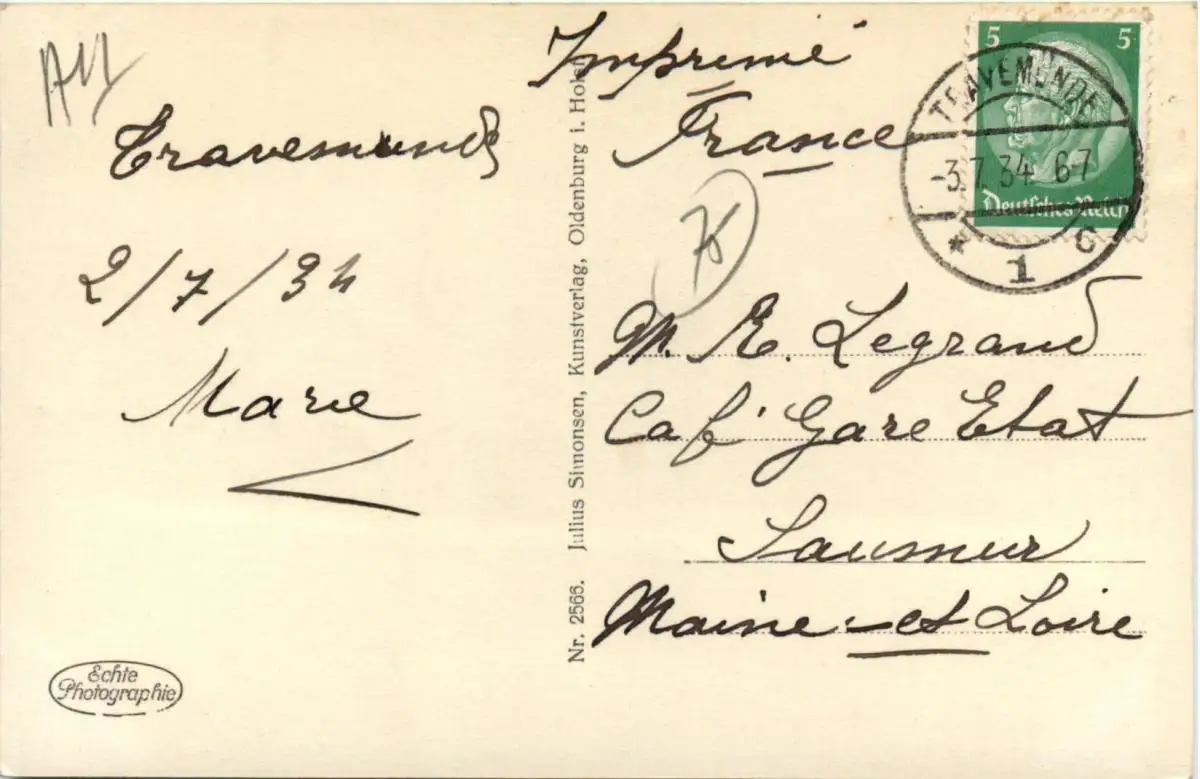 Travemunde
2/7/34
Marie
Echte
Photographie
Nr. 2566. Julius Simonsen, Kunstverlag, Oldenburg i. Holst.
Imprimé
France
5 5
TRAVEMÜNDE
-3.7.34 6-7
* 1 c
Deutsches Reich
75
M. E. Legrand
Caf' Gare Etat
Saumur
Maine-et Loire